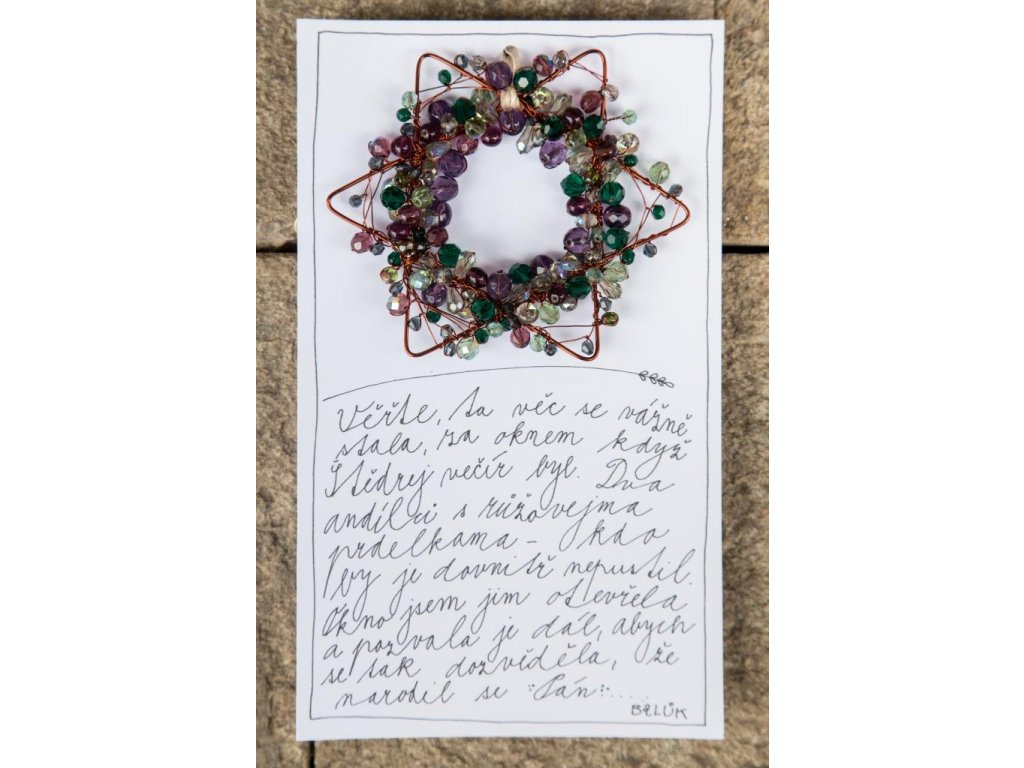 Věřte, ta věc se vážně
stala, za oknem když
Štědrej večír byl. Dva
andílci s růžovejma
prdelkama - kdo
by je dovnitř nepustil.
Okno jsem jim otevřela
a pozvala je dál, abych
se tak dozvěděla, že
narodil se Pán....
BRLŮK